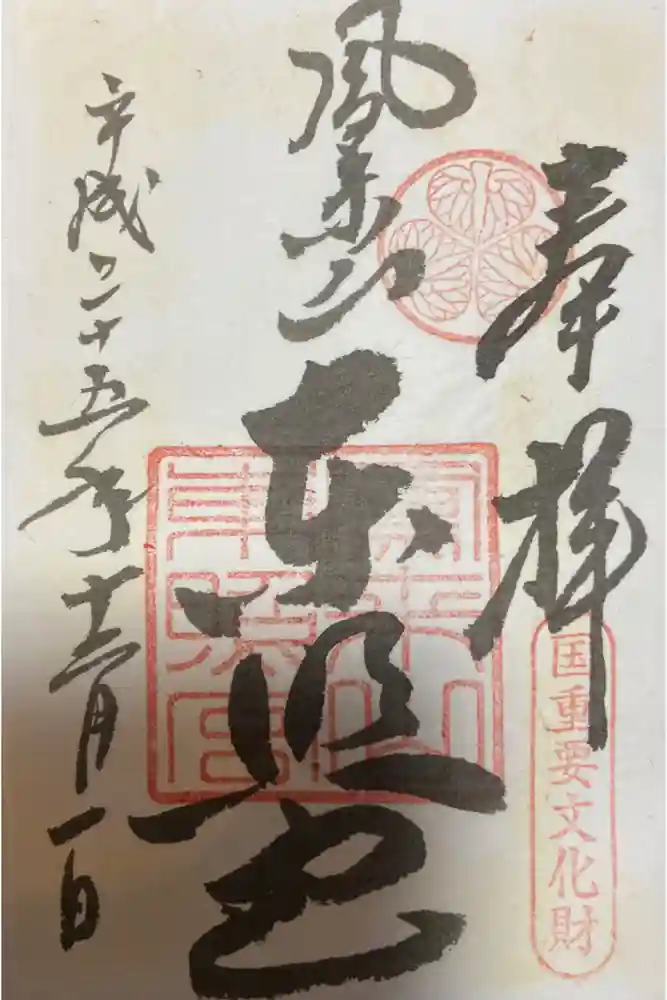 奉拝
国重要文化財
鳳来山
東照宮
鳳来山東照宮
平成二十五年十二月一日